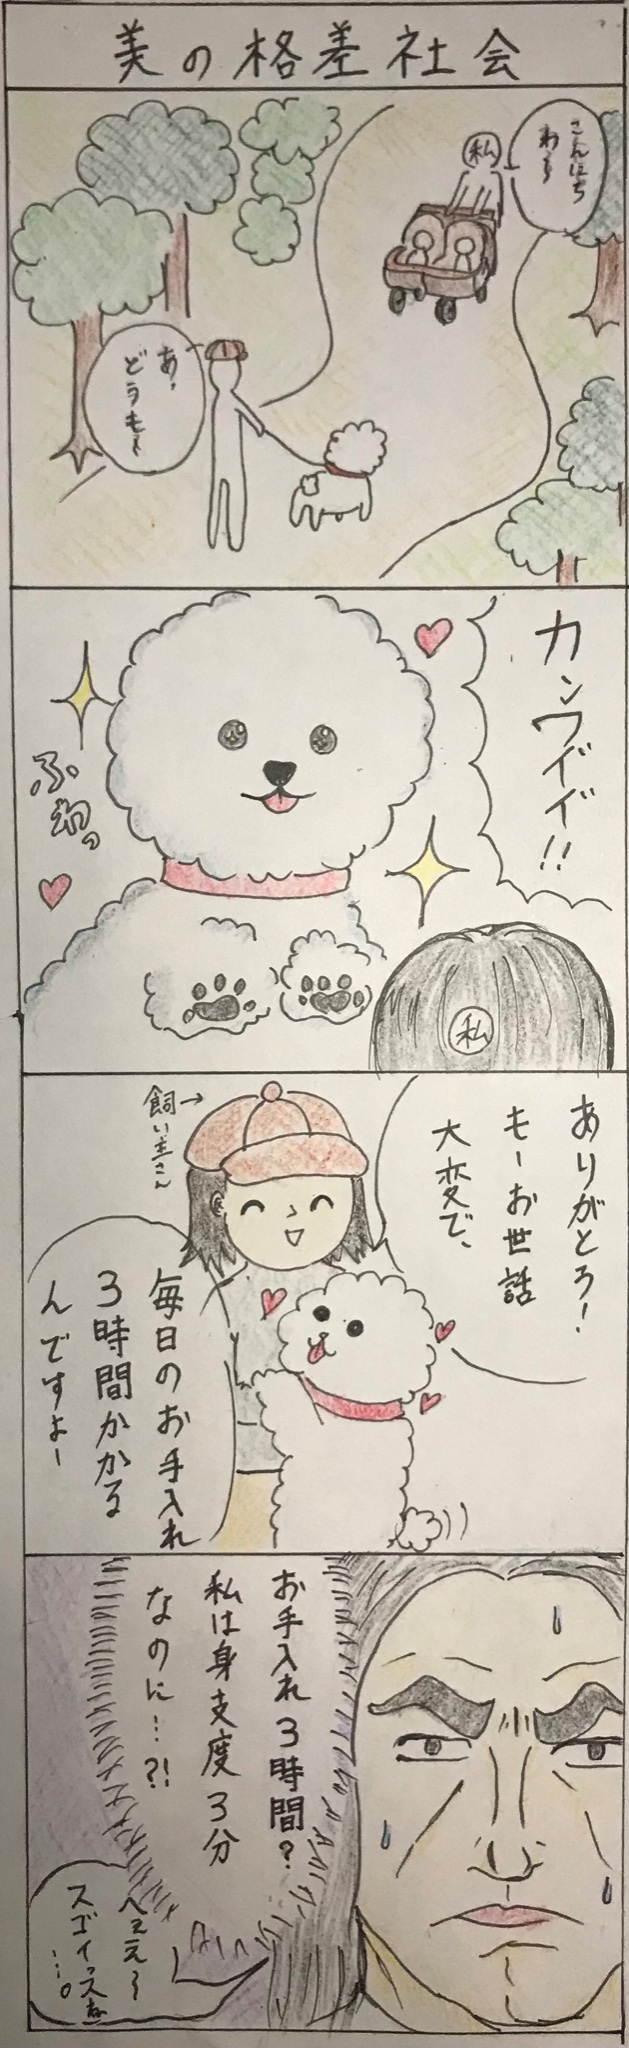 美の格差社会
こんにち
わ〜
私
あ、
どうも〜
カンワイイ!!
ふわっ
私
ありがとう!
もーお世話
大変で、
飼い主さん→
毎日のお手入れ
3時間かかる
んですよー
お手入れ3時間?
私は身支度3分
なのに…?!
へぇえ〜
スゴイっスね
…。